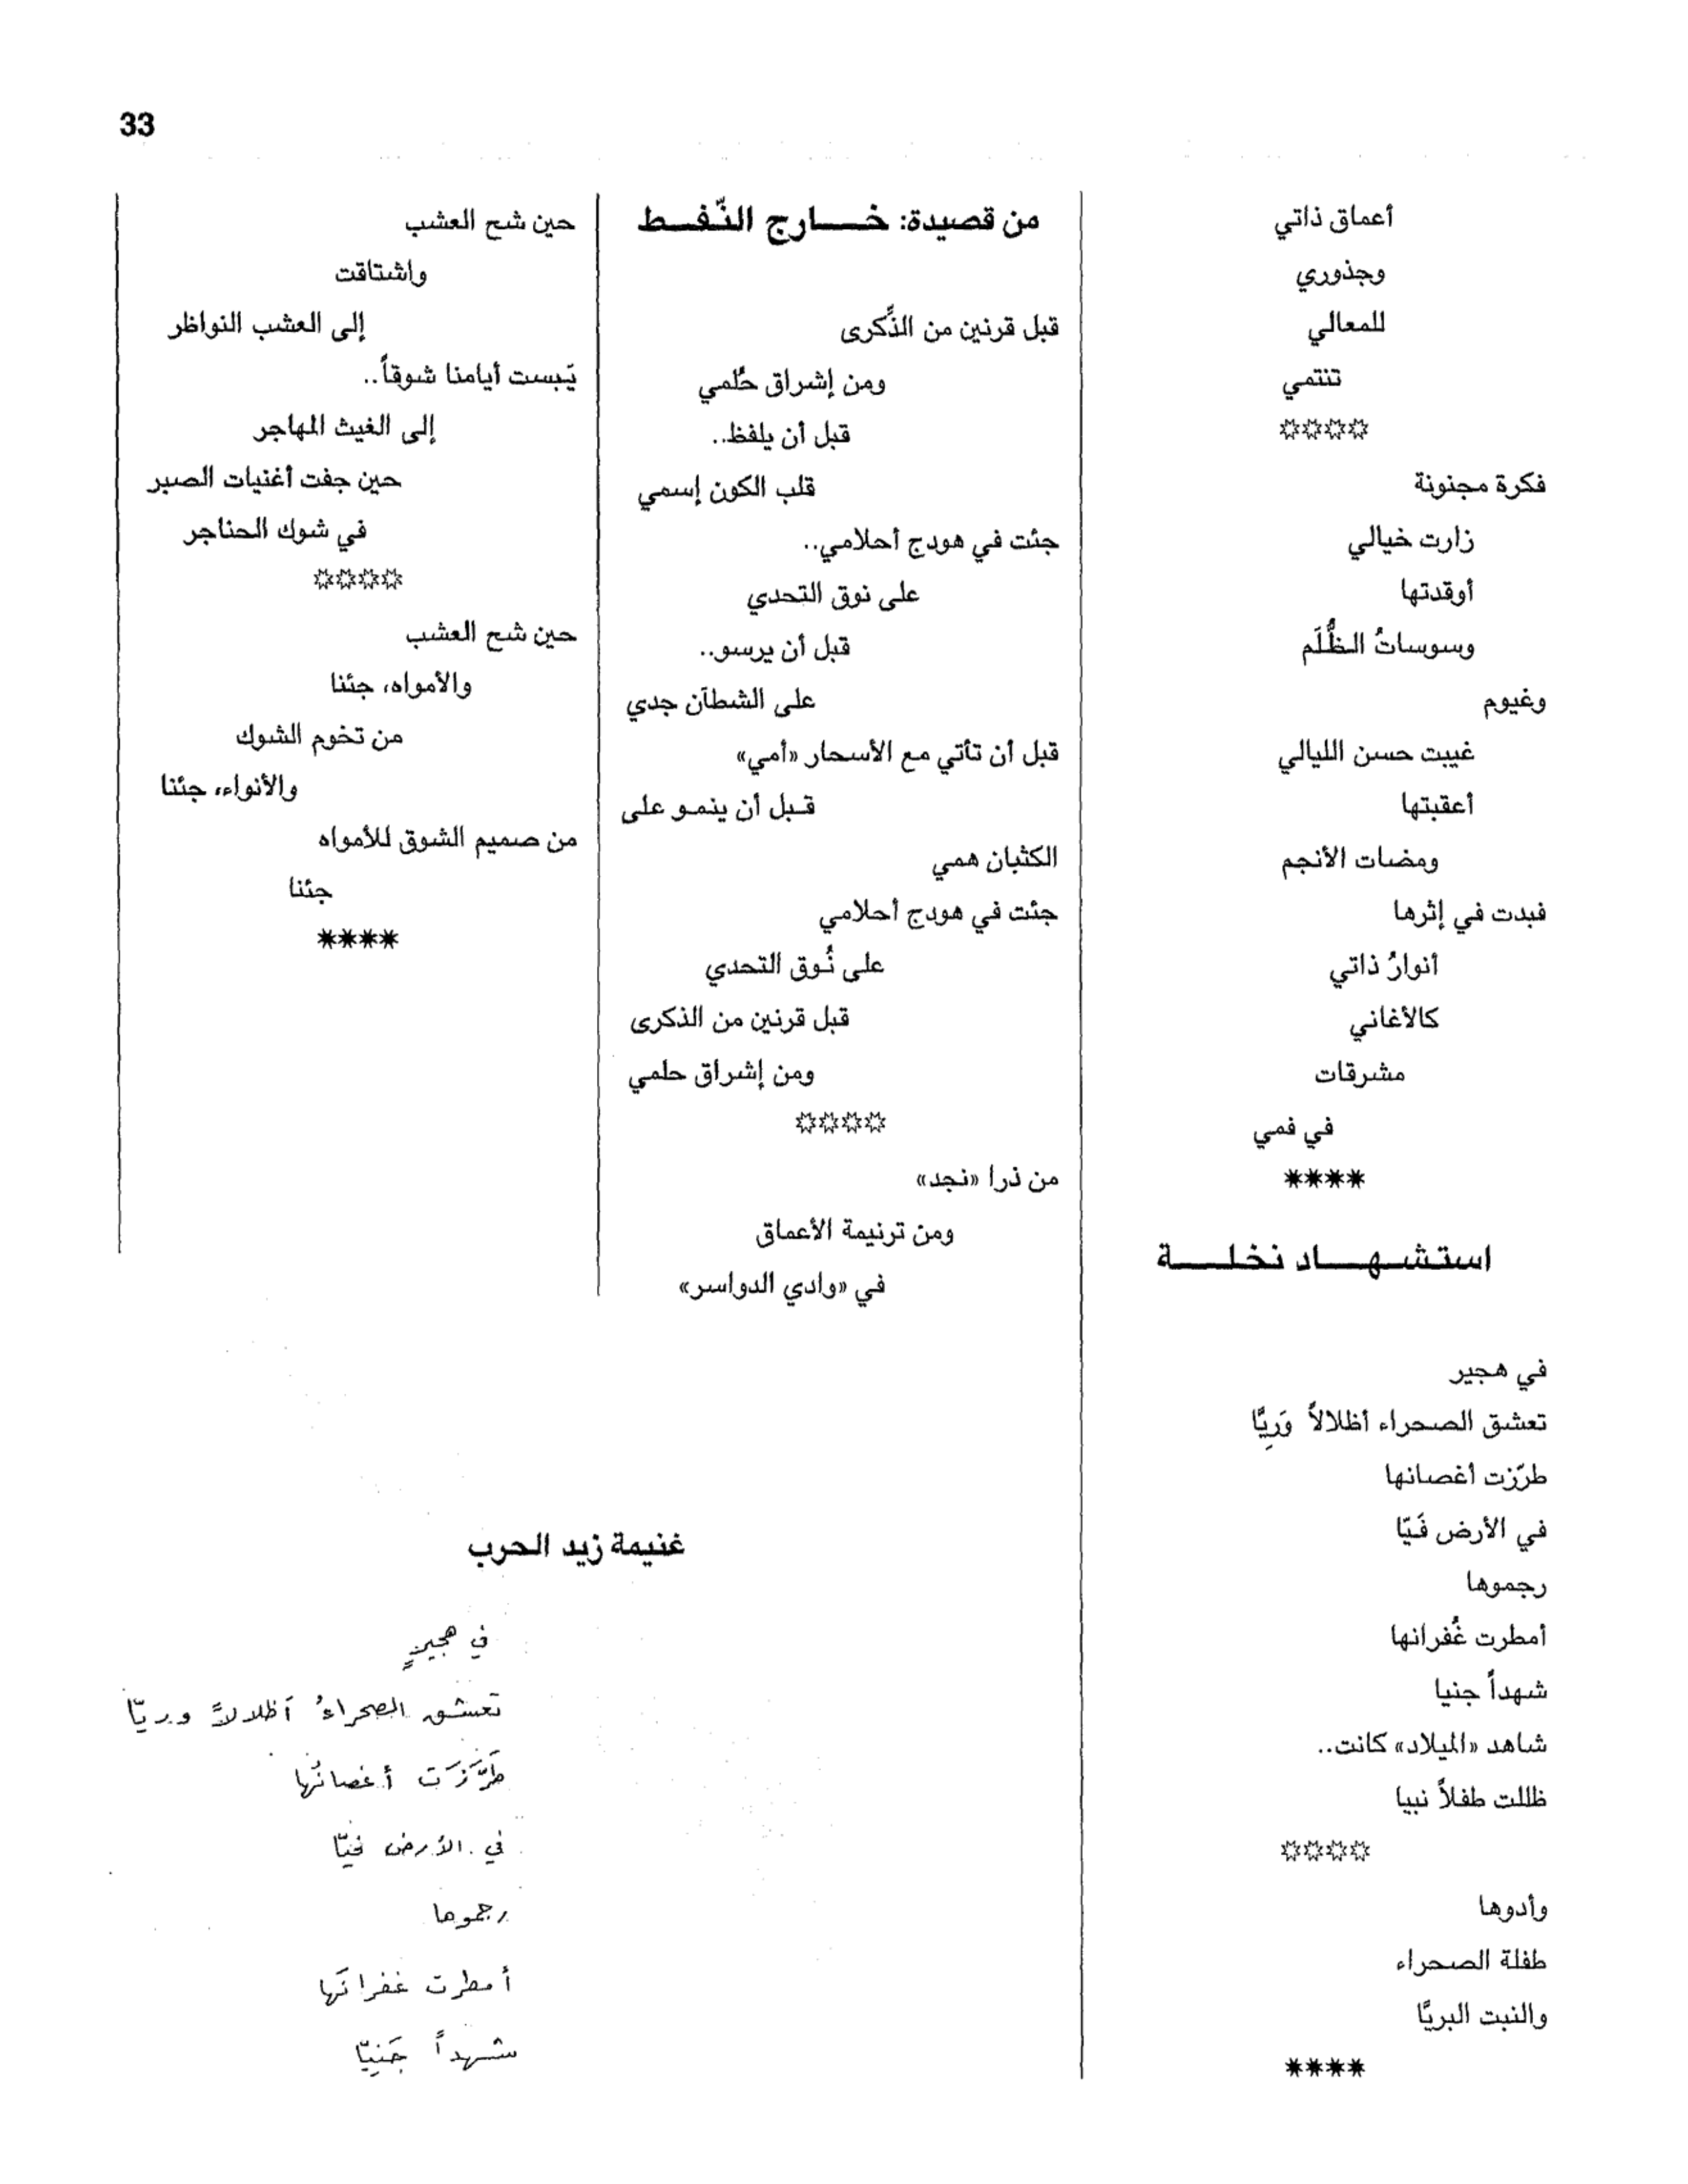 33
أعماق ذاتي
وجذوري
للمعالي
تنتمي
☼☼☼☼
فكرة مجنونة
زارت خيالي
أوقدتها
وسوساتُ الظُّلَم
وغيوم
غيبت حسن الليالي
أعقبتها
ومضات الأنجم
فبدت في إثرها
أنوارُ ذاتي
كالأغاني
مشرقات
في فمي
****
استشهاد نخلة
في هجير
تعشق الصحراء أظلالاً وَرِيًّا
طرّزت أغصانها
في الأرض فَيّا
رجموها
أمطرت غُفرانها
شهداً جنيا
شاهد «الميلاد» كانت..
ظللت طفلاً نبيا
☼☼☼☼
وأدوها
طفلة الصحراء
والنبت البريًّا
****
من قصيدة: خارج النّفط
قبل قرنين من الذِّكرى
ومن إشراق حُلمي
قبل أن يلفظ..
قلب الكون إسمي
جئت في هودج أحلامي..
على نوق التحدي
قبل أن يرسو..
على الشطآن جدي
قبل أن تأتي مع الأسحار «أمي»
قبل أن ينمو على
الكثبان همي
جئت في هودج أحلامي
على نُوق التحدي
قبل قرنين من الذكرى
ومن إشراق حلمي
☼☼☼☼
من ذرا «نجد»
ومن ترنيمة الأعماق
في «وادي الدواسر»
حين شح العشب
واشتاقت
إلى العشب النواظر
يَبست أيامنا شوقاً..
إلى الغيث المهاجر
حين جفت أغنيات الصبر
في شوك الحناجر
☼☼☼☼
حين شح العشب
والأمواه، جئنا
من تخوم الشوك
والأنواء، جئنا
من صميم الشوق للأمواه
جئنا
****
غنيمة زيد الحرب
في هجيرٍ
تعشق الصحراءُ أظلالاً وريّا
طَرَّزَت أغصانُها
في الأرض فيّا
رجموها
أمطرت غفرانَها
شهداً جَنِيّا